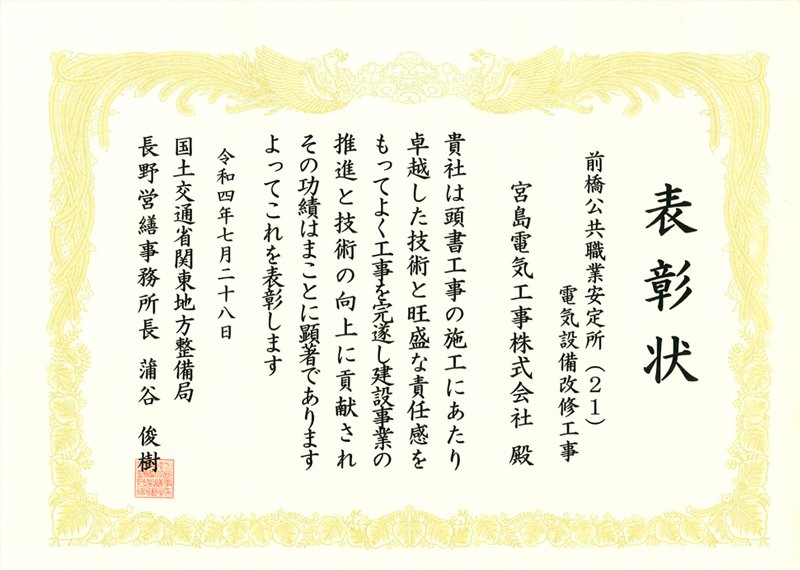 表彰状
前橋公共職業安定所（２１）
電気設備改修工事
宮島電気工事株式会社 殿
貴社は頭書工事の施工にあたり
卓越した技術と旺盛な責任感を
もってよく工事を完遂し建設事業の
推進と技術の向上に貢献され
その功績はまことに顕著であります
よってこれを表彰します
令和四年七月二十八日
国土交通省関東地方整備局
長野営繕事務所長 蒲谷 俊樹